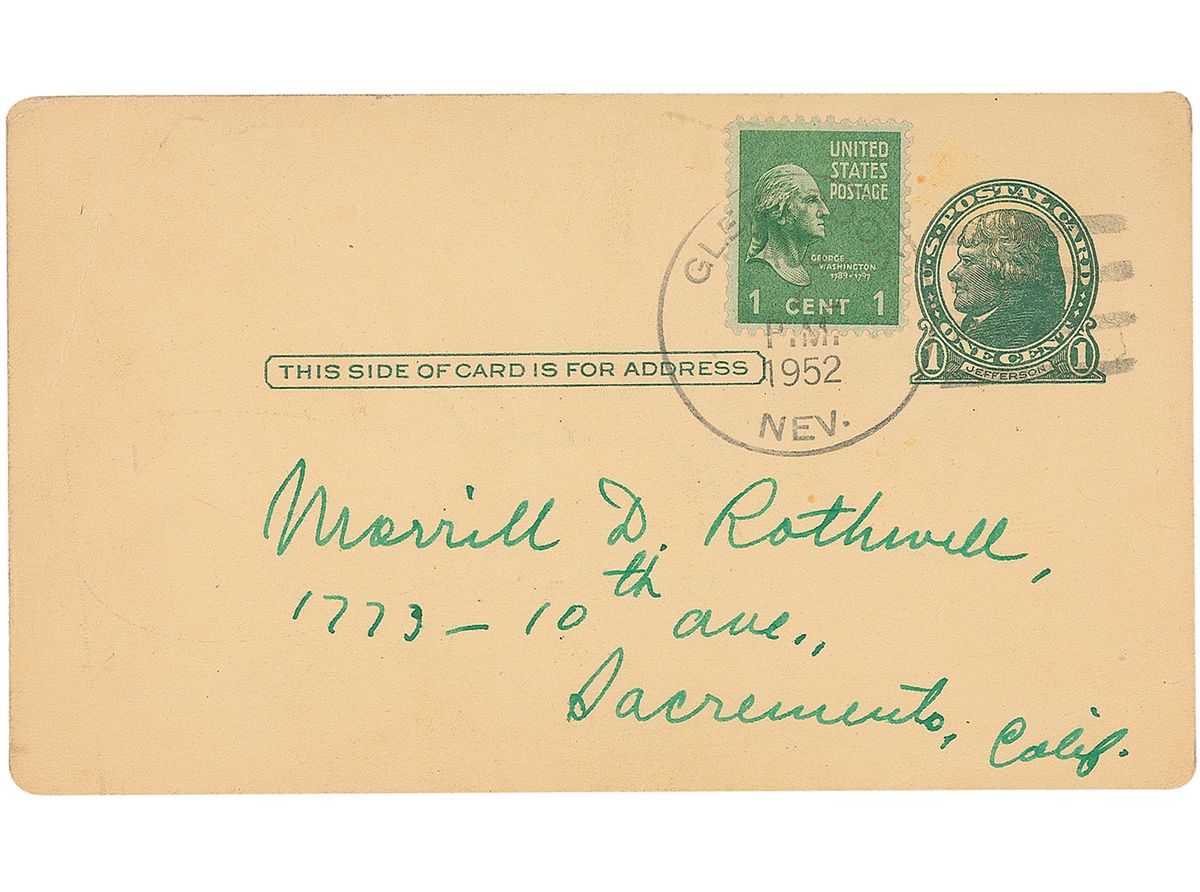 UNITED
STATES
POSTAGE
GEORGE
WASHINGTON
1789-1797
1 CENT 1
U.S. POSTAL CARD
ONE CENT
1 JEFFERSON 1
P.M.
1952
NEV.
THIS SIDE OF CARD IS FOR ADDRESS
Merrill D. Rothwell,
1773 – 10th ave.,
Sacremento, Calif.